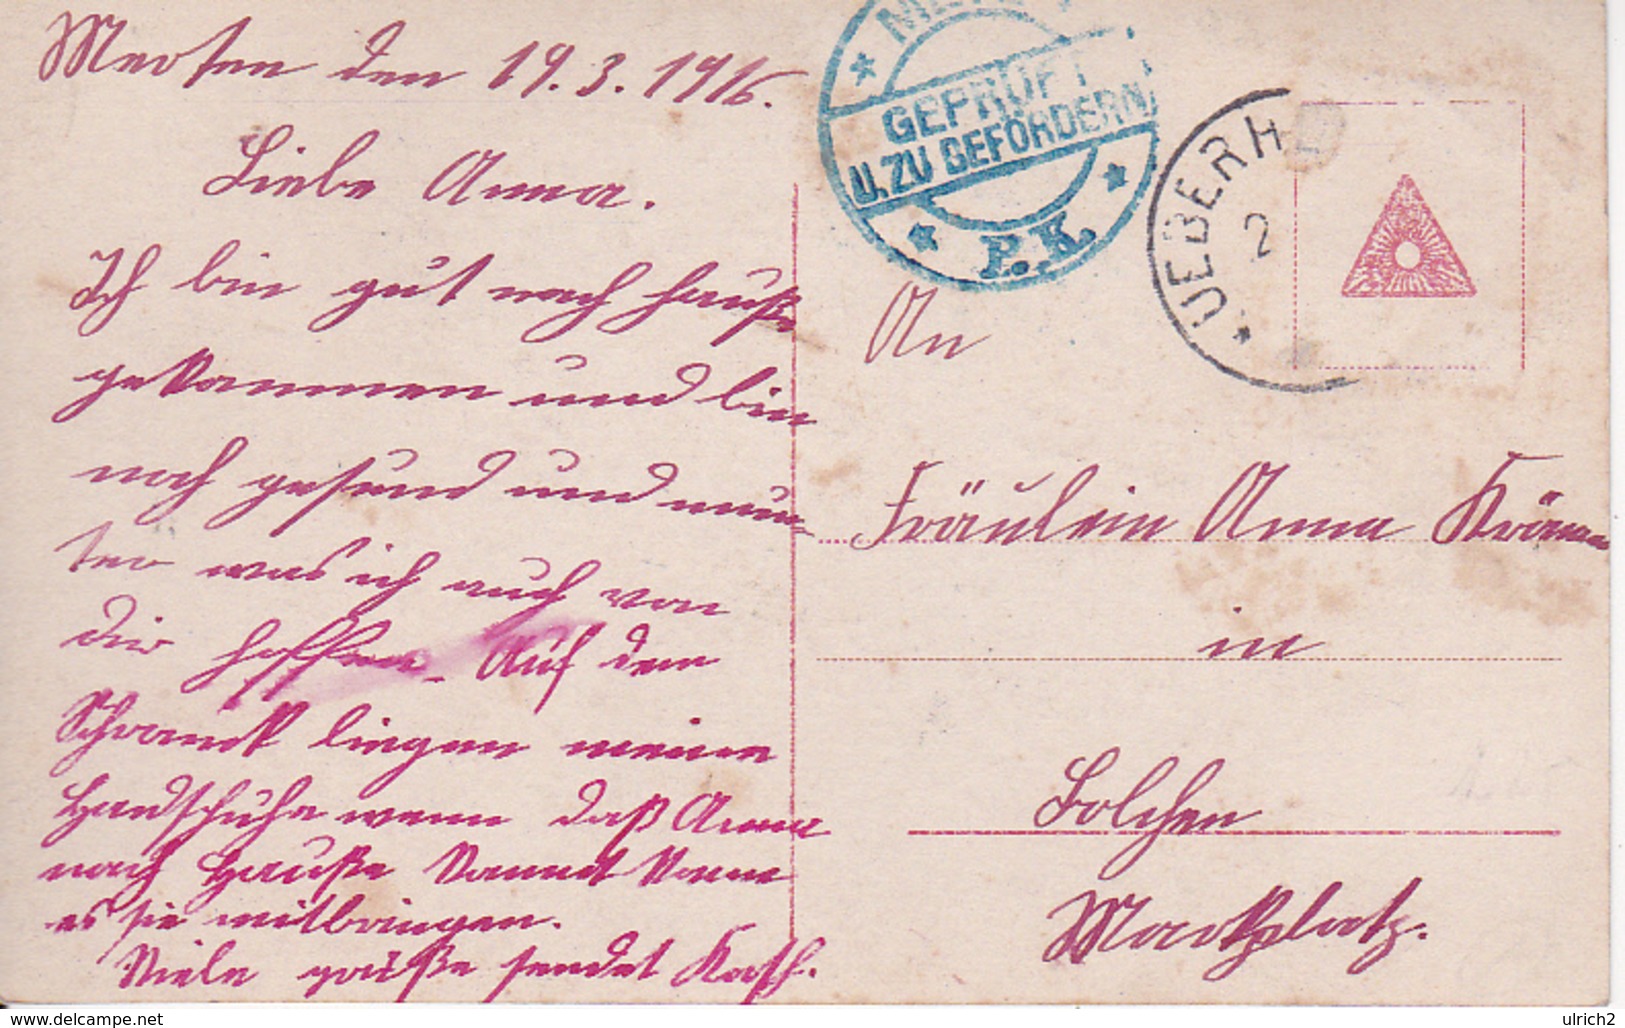 Merten den 19.3.1916.
Liebe Anna.
Ich bin gut nach hauße
gekommen und bin
noch gesund und mun-
ter was ich auch von
dir hoffen. Auf dem
Schranck liegen meine
Handschuhe wenn daß Anna
nach Hauße kommt kann
es sie mitbringen.
Viele grüße sendet Kath.
GEPRÜFT
U. ZU BEFÖRDERN
P.K.
UEBERH
2
An
Fräulein Anna
in
Bolchen
Marktplatz.
www.delcampe.net
ulrich2